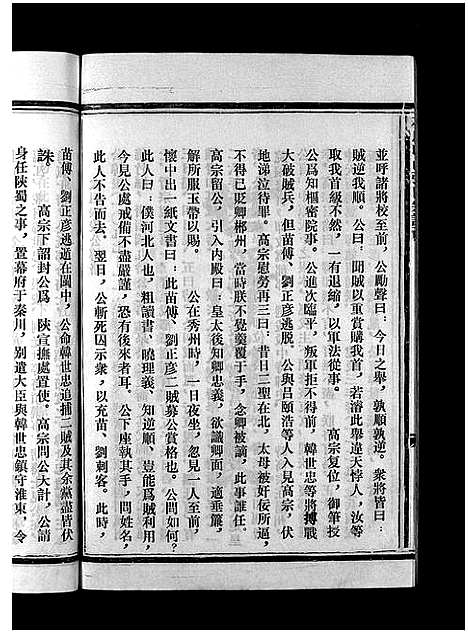 並呼諸將校至前，公勵聲曰：今日之舉，孰順孰逆。衆將皆曰：
賊逆我順。公曰：聞賊以重賞購我首，若濬此舉違天悖人，汝等
取我首級不然，一有退縮，以軍法從事。　高宗复位，御筆授
公爲知樞密院事。公進次臨平，叛軍拒不得前，韓世忠等將搏戰
大破賊兵，但苗傅、劉正彥逃脱。公與吕頤浩等人入見高宗，伏
地涕泣待罪。高宗慰勞再三曰：昔日二聖在北，太母被奸佞所逼，
不得已貶卿郴州，當時朕不覺羹覆于手，念卿被謫，此事誰任。
高宗留公，引入内殿曰：皇太後知卿忠義，欲識卿面，適垂簾，
解所服玉帶以賜。　公在秀州時，一日夜坐，忽見一人至前
懷中出一紙文書曰：此苗傅、劉正彥二賊募公賞格也。公問如何？
此人曰：僕河北人也，粗讀書，曉理義、知逆順，豈能爲賊利用，
今見公處戒備不盡嚴謹，恐有後來者耳。公下座執其手，問姓名，
此人不告而去。翌日，公斬死囚示衆，以充苗、劉刺客。此時，
苗傅、劉正彥逃遁在閩中，公命韓世忠追捕二賊及其余黨盡皆伏
誅。　高宗下詔封公爲　陝宣撫處置使。高宗問公大計，公請
身任陝蜀之事，置幕府于秦川，别遣大臣與韓世忠鎮守淮東，令